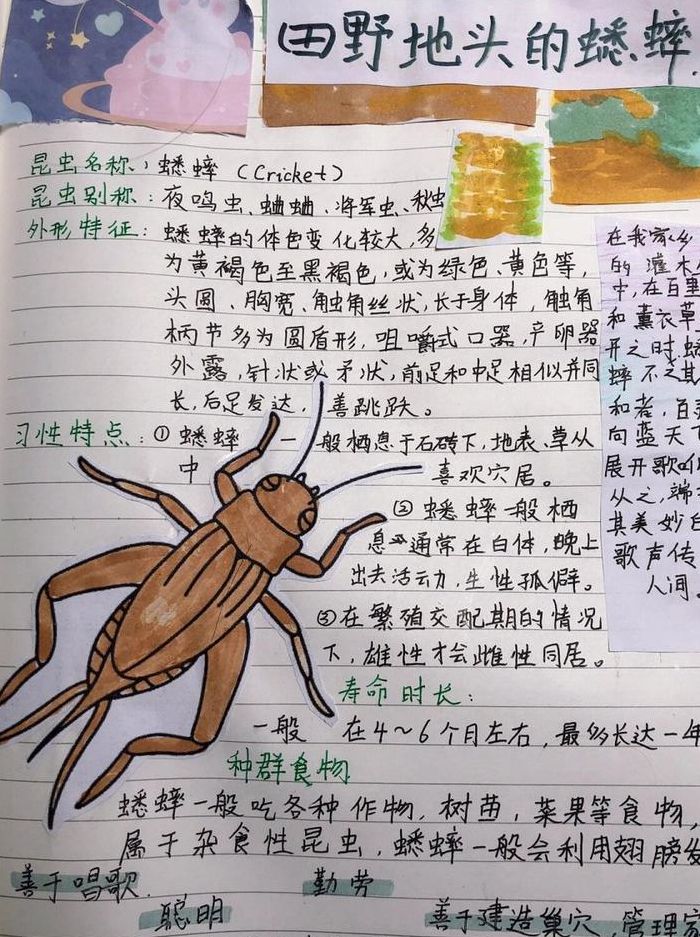 田野地头的蟋蟀
昆虫名称：蟋蟀（Cricket）
昆虫别称：夜鸣虫、蛐蛐、将军虫、秋虫
外形特征：蟋蟀的体色变化较大，多
为黄褐色至黑褐色，或为绿色、黄色等，
头圆、胸宽、触角丝状，长于身体，触角
柄节多为圆盾形，咀嚼式口器，产卵器
外露，针状或矛状，前足和中足相似并同
长，后足发达，善跳跃。
习性特点：①蟋蟀一般栖息于石砖下，地表、草丛
中 喜欢穴居。
②蟋蟀一般栖
息通常在白体，晚上
出去活动，生性孤僻。
③在繁殖交配期的情况
下，雄性才会雌性同居。
寿命时长：
一般 在4～6个月左右，最多长达一年
种群食物
蟋蟀一般吃各种作物，树苗，菜果等食物，
属于杂食性昆虫，蟋蟀一般会利用翅膀发
善于唱歌
勤劳
聪明
善于建造巢穴，管理家
在我家乡
的灌木
中，在百里
和薰衣草
开之时，蟋
蟀不乏其
和者，百
向蓝天下
展开歌
从之，端
其美妙
歌声传
人间。